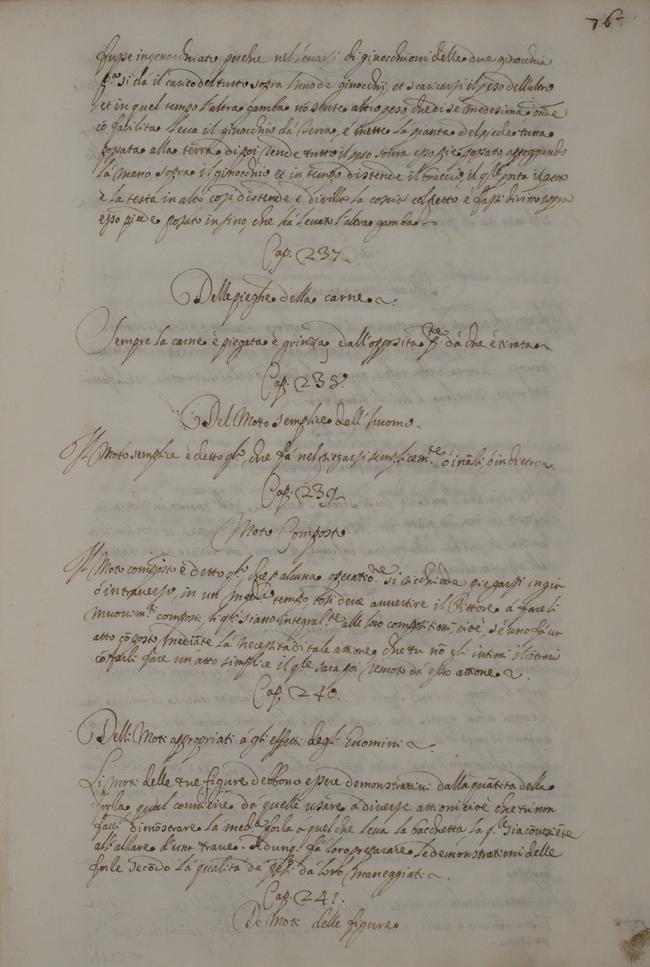 76
fusse ingenocchiato, perche nel levarsi di ginocchioni delle due ginocchia
p.a si dà il carico del tutto sopra l'uno de ginocchij, et scaricarsi il peso dell'altro
et in quel tempo l'altra gamba nō sente altro peso che di se medesima, onde
cō facilita leva il ginocchio dà terra, e mette la pianta del piede tutta
posata alla terra di poi rende tutto il peso sovra esso pie posato appoggiando
la mano sopra il ginocchio et in tempo distende il braccio il q.le porta il petto
e la testa in alto cosi distende e drizza la coscia col petto e fassi diritto sopra
esso piede posato insino, che hà levato l'altra gamba
Cap. 237
Delle pieghe della carne
Sempre la carne è piegata è grinza dall'opposita p.te dà che è tirata
Cap. 238.
Del Moto semplice dell'huomo
Il Moto semplice è detto q.lo, che fà nel piegarsi simplicem.te ò inãzi ò in dietro
Cap. 239
Moto Composto
Il Moto composto è detto q.lo, che p alcuna operatio.ne si richiede piegarsi in giu
ò in traverso, in un med.o tempo, cosi deve avvertire il Pittore à fare li
movim.ti composti, li q.li siano integral.te alle loro compositioni, cioè, se uno fà un
atto cōposto mediãte la necessità di tale attione, che tu nō gli intimi il cōtrario
cō farli fare un'atto simplice il q.le sara poi remoto dà esso attione
Cap. 240.
Delli Moti appropriati à gli effetti degl'Huomini
Li moti delle tue figure debbono essere demonstrativi dalla quãtità della
forza qual conviene da quelle usare à diverse attioni cioè che tù non
facci dimostrare la med.a forza à quel che leva la bacchetta la q.le sia cōveniēte
all'alzare d'una trave. Adunq. fà loro preparare le demonstrationi delle
forze secōdo la qualità de pesi dà loro maneggiati
Cap. 241.
De Moti delle figure